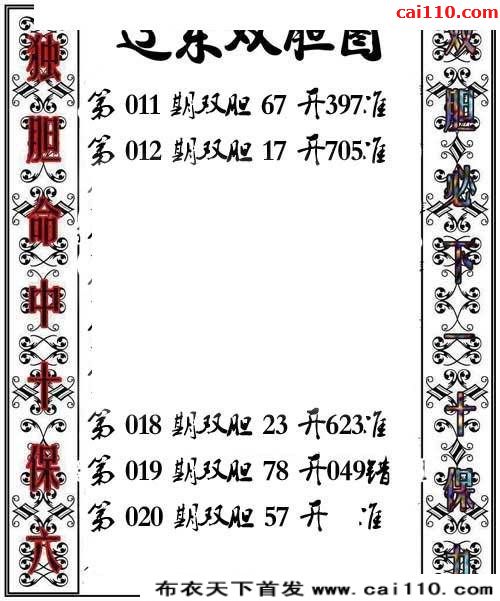 cai110.com
辽东双胆图
第 011 期双胆 67 开397准
第 012 期双胆 17 开705准
第 018 期双胆 23 开623准
第 019 期双胆 78 开049错
第 020 期双胆 57 开 准
独胆命中十保六
双胆必下一十保九
布衣天下首发 www.cai110.com